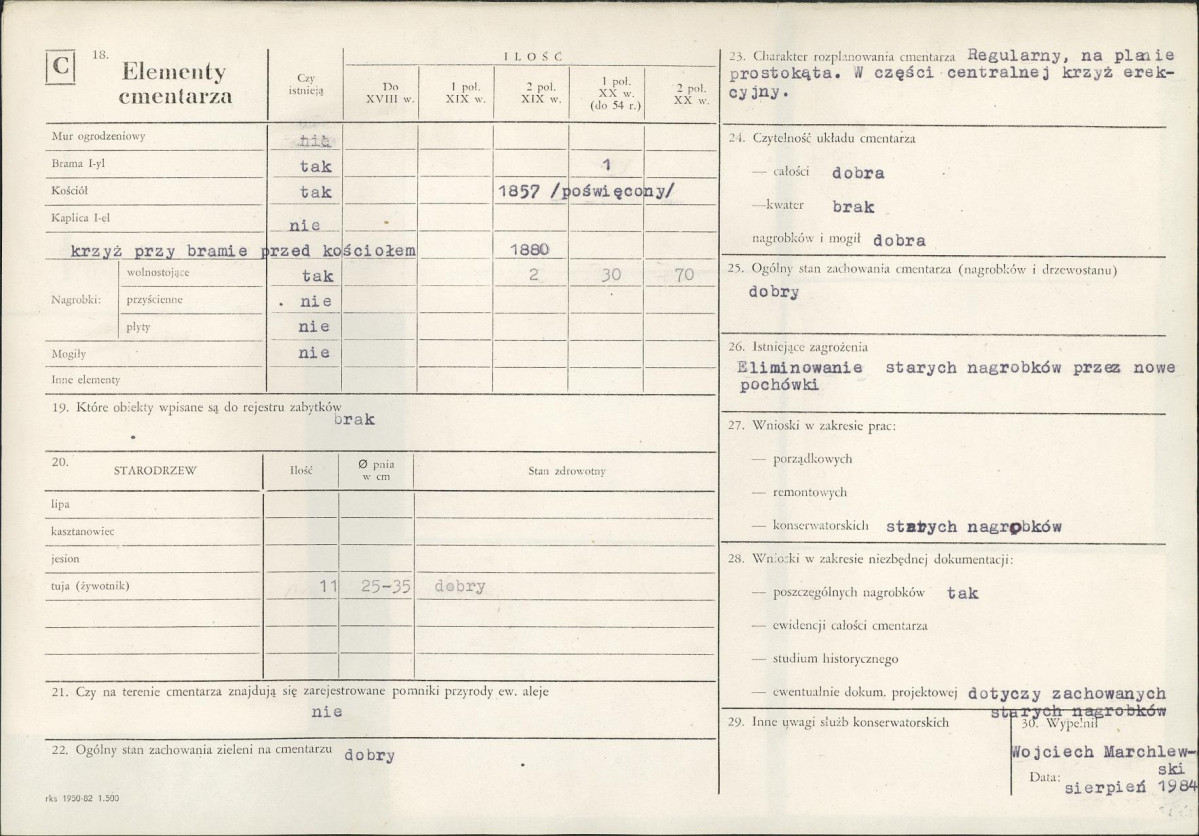 C
18. Elementy cmentarza
Czy istnieją
ILOŚĆ
Do XVIII w.
1 poł. XIX w.
2 poł. XIX w.
1 poł. XX w. (do 54 r.)
2 poł. XX w.
Mur ogrodzeniowy nie
Brama I-yl tak 1
Kościół tak 1857 /poświęcony/
Kaplica I-el nie
krzyż przy bramie przed kościołem 1880
Nagrobki:
wolnostojące tak 2 30 70
przyścienne nie
płyty nie
Mogiły nie
Inne elementy
19. Które obiekty wpisane są do rejestru zabytków
brak
20. STARODRZEW
Ilość
Ø pnia w cm
Stan zdrowotny
lipa
kasztanowiec
jesion
tuja (żywotnik) 11 25-35 dobry
21. Czy na terenie cmentarza znajdują się zarejestrowane pomniki przyrody ew. aleje
nie
22. Ogólny stan zachowania zieleni na cmentarzu dobry
rks 1950-82 1.500
23. Charakter rozplanowania cmentarza Regularny, na planie
prostokąta. W części centralnej krzyż erek-
cyjny.
24. Czytelność układu cmentarza
— całości dobra
—kwater brak
nagrobków i mogił dobra
25. Ogólny stan zachowania cmentarza (nagrobków i drzewostanu)
dobry
26. Istniejące zagrożenia
Eliminowanie starych nagrobków przez nowe
pochówki
27. Wnioski w zakresie prac:
— porządkowych
— remontowych
— konserwatorskich starych nagrobków
28. Wnioski w zakresie niezbędnej dokumentacji:
— poszczególnych nagrobków tak
— ewidencji całości cmentarza
— studium historycznego
— ewentualnie dokum. projektowej dotyczy zachowanych
starych nagrobków
29. Inne uwagi służb konserwatorskich
30. Wypełnił
Wojciech Marchlew-
ski
Data: sierpień 1984